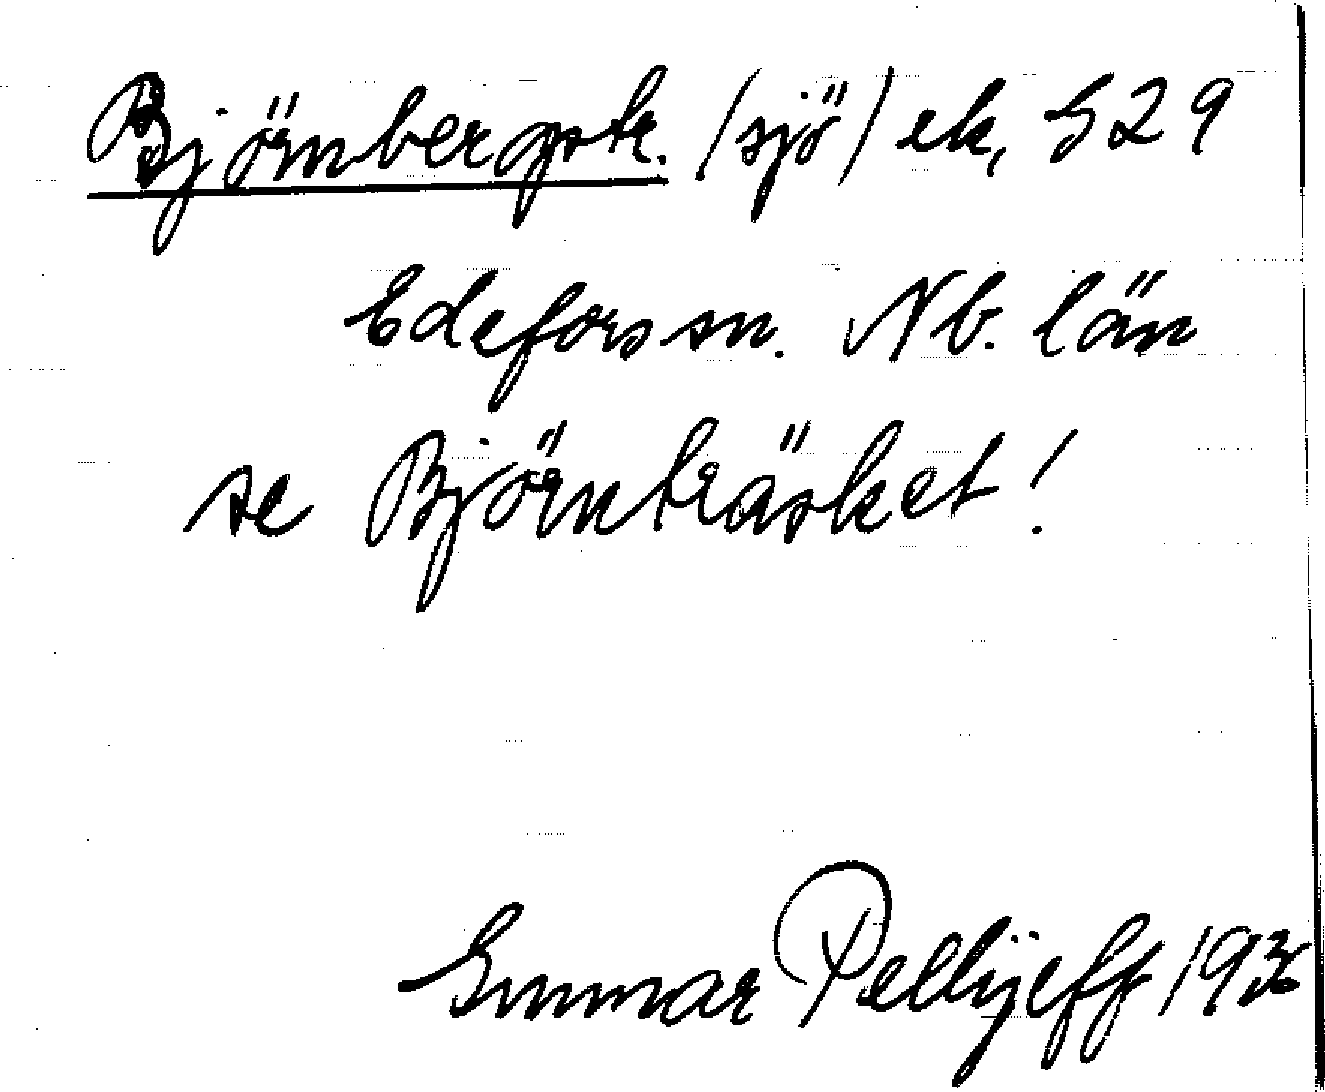 Björnbergstr. (sjö) ek, S29
Edefors sn. Nb. län
se Björnträsket!
Gunnar Pellijeff 1936